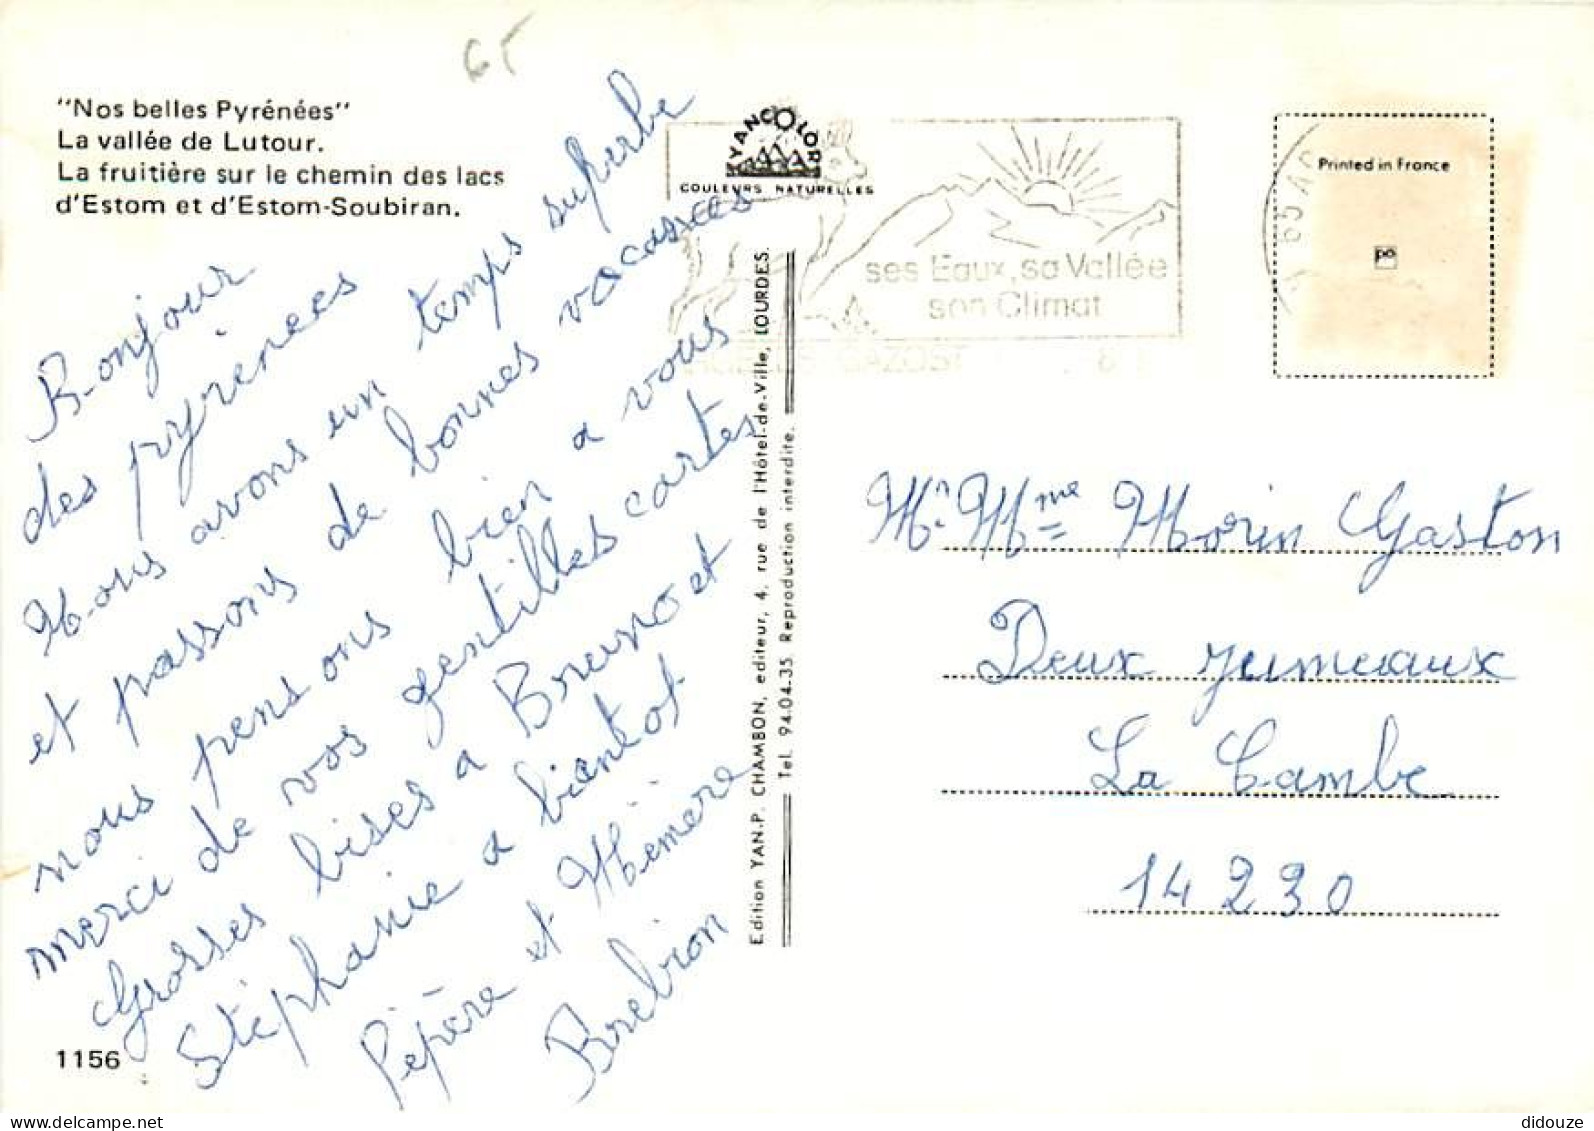 65
"Nos belles Pyrénées"
La vallée de Lutour.
La fruitière sur le chemin des lacs
d'Estom et d'Estom-Soubiran.
YANCOLOR
COULEURS NATURELLES
ses Eaux, sa Vallée
son Climat
Printed in France
Bonjour
des pyrénees
Nous avons un temps superbe
et passons de bonnes vacasces
nous pensons bien a vous
merci de vos gentilles cartes
Grosses bises a Bruno et
Stéphanie a biéntot
Pépère et Mémère
Brebion
Edition YAN.P. CHAMBON, editeur, 4, rue de l'Hôtel-de-Ville, LOURDES.
Tel. 94.04.35. Reproduction interdite.
Mr. Mme Morin Gaston
Deux jumeaux
La Cambe
14230
1156
didouze